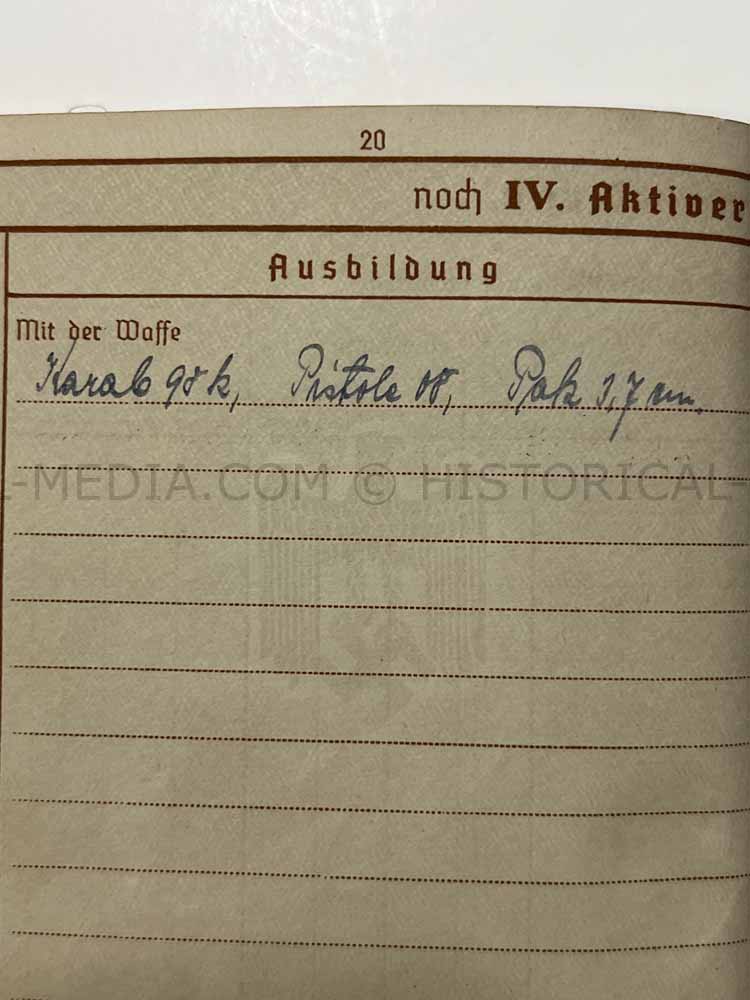 20
noch IV. Aktiver
Ausbildung
Mit der Waffe
Karab 98k, Pistole 08, Pak 3,7 cm.
L-MEDIA.COM © HISTORICAL-